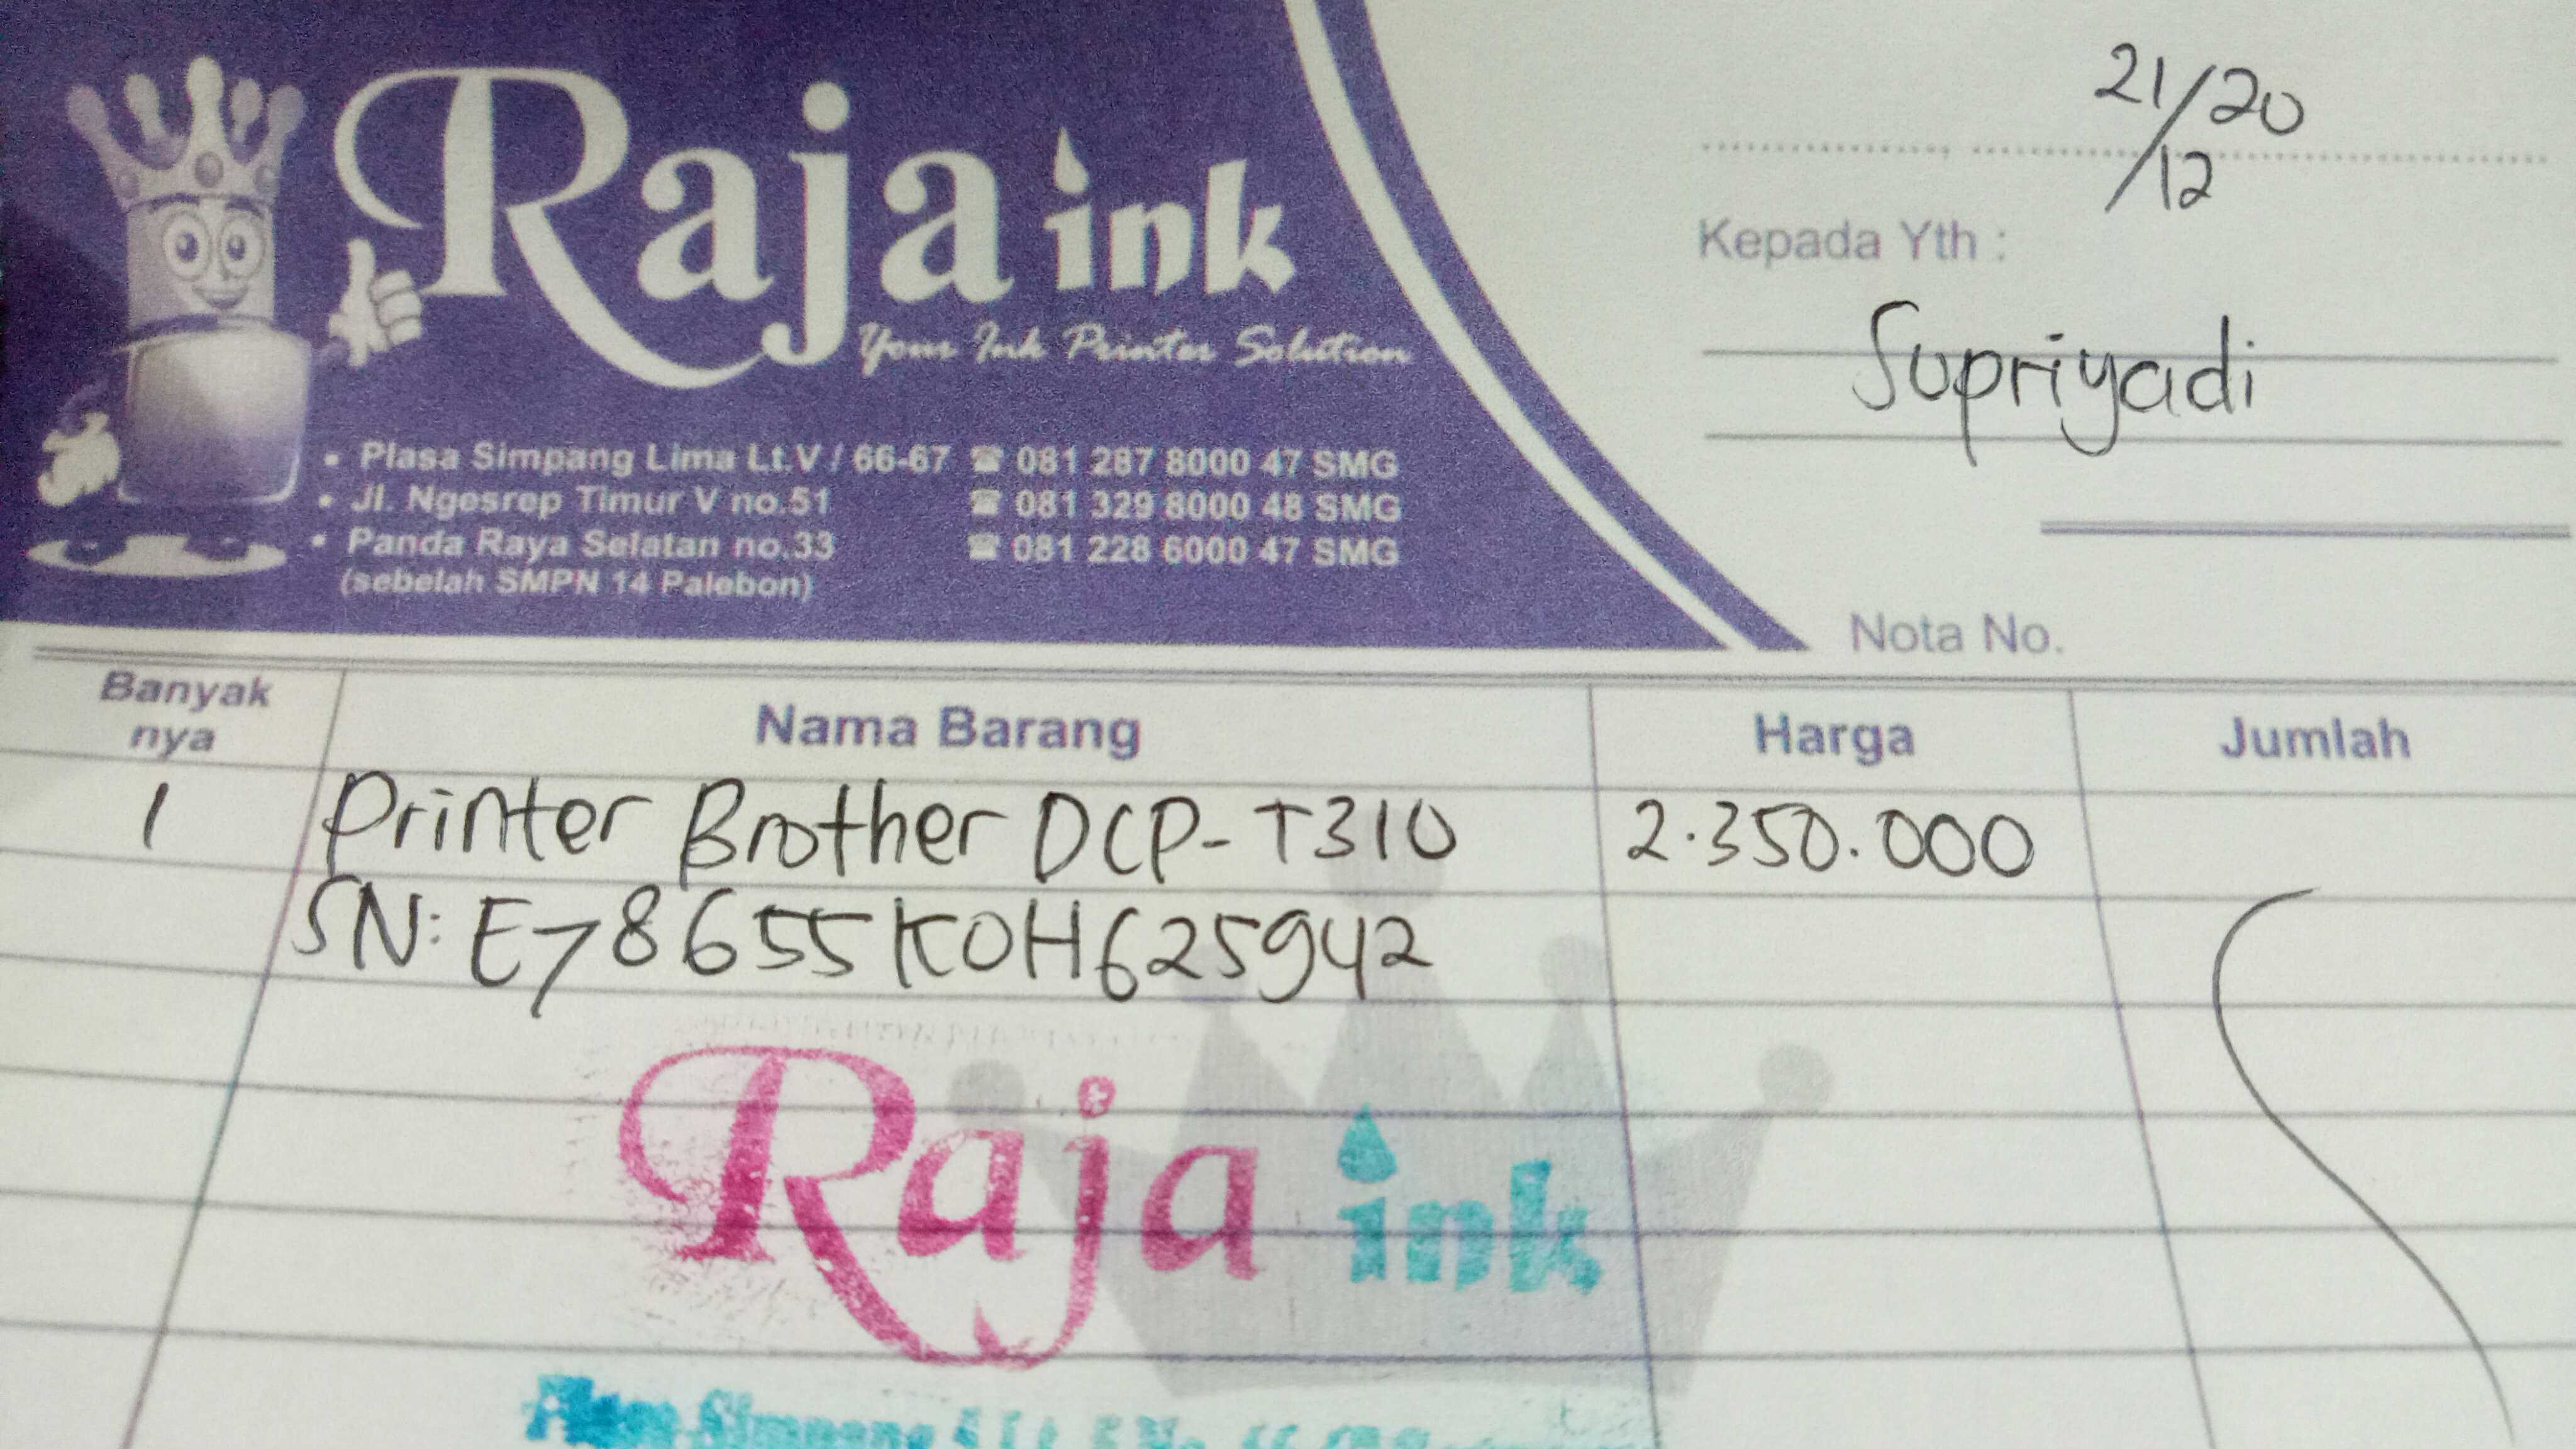 Raja ink
Your Ink Printer Solution
• Plasa Simpang Lima Lt.V / 66-67 ☎ 081 287 8000 47 SMG
• Jl. Ngesrep Timur V no.51 ☎ 081 329 8000 48 SMG
• Panda Raya Selatan no.33 ☎ 081 228 6000 47 SMG
(sebelah SMPN 14 Palebon)
21/12 20
Kepada Yth :
Supriyadi
Nota No.
Banyak nya Nama Barang Harga Jumlah
1 Printer Brother DCP-T310 2.350.000
SN: E78655K0H625942
Raja ink
Plasa Simpang